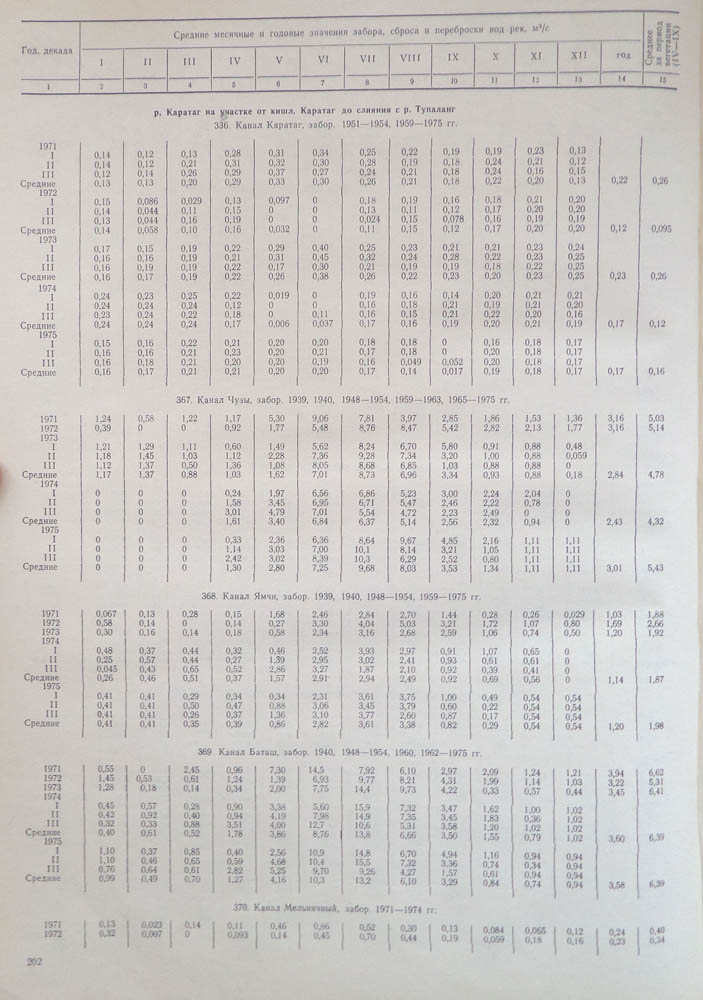 Год, декада
Средние месячные и годовые значения забора, сброса и переброски вод рек, м³/с
Среднее за период вегетации (IV—IX)
I II III IV V VI VII VIII IX X XI XII год
1 2 3 4 5 6 7 8 9 10 11 12 13 14 15
р. Каратаг на участке от кишл. Каратаг до слияния с р. Тупаланг
336. Канал Каратаг, забор. 1951—1954, 1959—1975 гг.
1971
I 0,14 0,12 0,13 0,28 0,31 0,34 0,25 0,22 0,19 0,19 0,23 0,13
II 0,14 0,12 0,21 0,31 0,32 0,30 0,28 0,19 0,18 0,24 0,21 0,12
III 0,12 0,14 0,26 0,29 0,37 0,27 0,24 0,21 0,18 0,24 0,16 0,15
Средние 0,13 0,13 0,20 0,29 0,33 0,30 0,26 0,21 0,18 0,22 0,20 0,13 0,22 0,26
1972
I 0,15 0,086 0,029 0,13 0,097 0 0,18 0,19 0,16 0,18 0,21 0,20
II 0,14 0,044 0,11 0,15 0 0 0,13 0,11 0,12 0,17 0,20 0,20
III 0,13 0,044 0,16 0,19 0 0 0,024 0,15 0,078 0,16 0,19 0,19
Средние 0,14 0,058 0,10 0,16 0,032 0 0,11 0,15 0,12 0,17 0,20 0,20 0,12 0,095
1973
I 0,17 0,15 0,19 0,22 0,29 0,40 0,25 0,23 0,21 0,21 0,23 0,24
II 0,16 0,16 0,19 0,21 0,31 0,45 0,32 0,24 0,28 0,22 0,23 0,25
III 0,16 0,19 0,19 0,22 0,17 0,30 0,21 0,19 0,19 0,18 0,22 0,25
Средние 0,16 0,17 0,19 0,22 0,26 0,38 0,26 0,22 0,23 0,20 0,23 0,25 0,23 0,26
1974
I 0,24 0,23 0,25 0,22 0,019 0 0,19 0,16 0,14 0,20 0,21 0,21
II 0,24 0,24 0,24 0,12 0 0 0,16 0,18 0,21 0,19 0,21 0,20
III 0,23 0,24 0,22 0,18 0 0,11 0,16 0,15 0,21 0,22 0,20 0,16
Средние 0,24 0,24 0,24 0,17 0,006 0,037 0,17 0,16 0,19 0,20 0,21 0,19 0,17 0,12
1975
I 0,15 0,16 0,22 0,21 0,20 0,20 0,18 0,18 0 0,16 0,18 0,17
II 0,16 0,16 0,21 0,23 0,20 0,21 0,17 0,18 0 0,20 0,18 0,17
III 0,16 0,18 0,21 0,20 0,20 0,19 0,16 0,049 0,052 0,20 0,18 0,17
Средние 0,16 0,17 0,21 0,21 0,20 0,20 0,17 0,14 0,017 0,19 0,18 0,17 0,17 0,16
367. Канал Чузы, забор. 1939, 1940, 1948—1954, 1959—1963, 1965—1975 гг.
1971 1,24 0,58 1,22 1,17 5,30 9,06 7,81 3,97 2,85 1,86 1,53 1,36 3,16 5,03
1972 0,39 0 0 0,92 1,77 5,48 8,76 8,47 5,42 2,82 2,13 1,77 3,16 5,14
1973
I 1,21 1,29 1,11 0,60 1,49 5,62 8,24 6,70 5,80 0,91 0,88 0,48
II 1,18 1,45 1,03 1,12 2,28 7,36 9,28 7,34 3,20 1,00 0,88 0,059
III 1,12 1,37 0,50 1,36 1,08 8,05 8,68 6,85 1,03 0,88 0,88 0
Средние 1,17 1,37 0,88 1,03 1,62 7,01 8,73 6,96 3,34 0,93 0,88 0,18 2,84 4,78
1974
I 0 0 0 0,24 1,97 6,56 6,86 5,23 3,00 2,24 2,04 0
II 0 0 0 1,58 3,45 6,95 6,71 5,47 2,46 2,22 0,78 0
III 0 0 0 3,01 4,79 7,01 5,54 4,72 2,23 2,49 0 0
Средние 0 0 0 1,61 3,40 6,84 6,37 5,14 2,56 2,32 0,94 0 2,43 4,32
1975
I 0 0 0 0,33 2,36 6,36 8,64 9,67 4,85 2,16 1,11 1,11
II 0 0 0 1,14 3,03 7,00 10,1 8,14 3,21 1,05 1,11 1,11
III 0 0 0 2,42 3,02 8,39 10,3 6,29 2,52 0,80 1,11 1,11
Средние 0 0 0 1,30 2,80 7,25 9,68 8,03 3,53 1,34 1,11 1,11 3,01 5,43
368. Канал Ямчи, забор. 1939, 1940, 1948—1954, 1959—1975 гг.
1971 0,067 0,13 0,28 0,15 1,68 2,46 2,84 2,70 1,44 0,28 0,26 0,029 1,03 1,88
1972 0,58 0,14 0 0,14 0,27 3,30 4,04 5,03 3,21 1,72 1,07 0,80 1,69 2,66
1973 0,30 0,16 0,14 0,18 0,58 2,34 3,16 2,68 2,59 1,06 0,74 0,50 1,20 1,92
1974
I 0,48 0,37 0,44 0,32 0,46 2,52 3,93 2,97 0,91 1,07 0,65 0
II 0,25 0,57 0,44 0,27 1,39 2,95 3,02 2,41 0,93 0,61 0,61 0
III 0,045 0,43 0,65 0,52 2,86 3,27 1,87 2,10 0,92 0,39 0,41 0
Средние 0,26 0,46 0,51 0,37 1,57 2,91 2,94 2,49 0,92 0,69 0,56 0 1,14 1,87
1975
I 0,41 0,41 0,29 0,34 0,34 2,31 3,61 3,75 1,00 0,49 0,54 0,54
II 0,41 0,41 0,50 0,47 0,88 3,06 3,45 3,79 0,60 0,22 0,54 0,54
III 0,41 0,41 0,26 0,37 1,36 3,10 3,77 2,60 0,87 0,17 0,54 0,54
Средние 0,41 0,41 0,35 0,39 0,86 2,82 3,61 3,38 0,82 0,29 0,54 0,54 1,20 1,98
369. Канал Баташ, забор. 1940, 1948—1954, 1960, 1962—1975 гг.
1971 0,55 0 2,45 0,96 7,30 14,5 7,92 6,10 2,97 2,09 1,24 1,21 3,94 6,62
1972 1,45 0,53 0,61 1,24 1,39 6,93 9,77 8,21 4,31 1,99 1,14 1,03 3,22 5,31
1973 1,28 0,18 0,14 0,34 2,00 7,75 14,4 9,73 4,22 0,33 0,57 0,44 3,45 6,41
1974
I 0,45 0,57 0,28 0,90 3,38 5,60 15,9 7,32 3,47 1,62 1,00 1,02
II 0,42 0,92 0,40 0,94 4,19 7,98 14,9 7,35 3,45 1,83 0,36 1,02
III 0,32 0,33 0,88 3,51 4,00 12,7 10,6 5,31 3,58 1,20 1,02 1,02
Средние 0,40 0,61 0,52 1,78 3,86 8,76 13,8 6,66 3,50 1,55 0,79 1,02 3,60 6,39
1975
I 1,10 0,37 0,85 0,40 2,56 10,9 14,8 6,70 4,94 1,16 0,94 0,94
II 1,10 0,46 0,65 0,59 4,68 10,4 15,5 7,32 3,36 0,74 0,34 0,94
III 0,76 0,64 0,61 2,82 5,25 9,70 9,26 4,27 1,57 0,61 0,94 0,94
Средние 0,99 0,49 0,70 1,27 4,16 10,3 13,2 6,10 3,29 0,84 0,74 0,94 3,58 6,39
370. Канал Мельничный, забор. 1971—1974 гг.
1971 0,13 0,023 0,14 0,11 0,46 0,86 0,52 0,30 0,13 0,084 0,065 0,12 0,24 0,40
1972 0,32 0,007 0 0,093 0,14 0,45 0,70 0,44 0,19 0,059 0,18 0,16 0,23 0,34
202